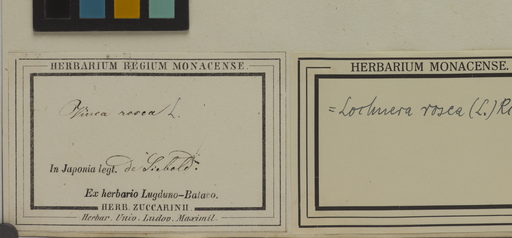 HERBARIUM REGIUM MONACENSE.
Vinca rosea L.
In Japonia legt. de Siebold.
Ex herbario Lugduno-Batavo.
HERB. ZUCCARINII
Herbar. Univ. Ludov. Maximil.
HERBARIUM MONACENSE.
= Lochnera rosea (L.)